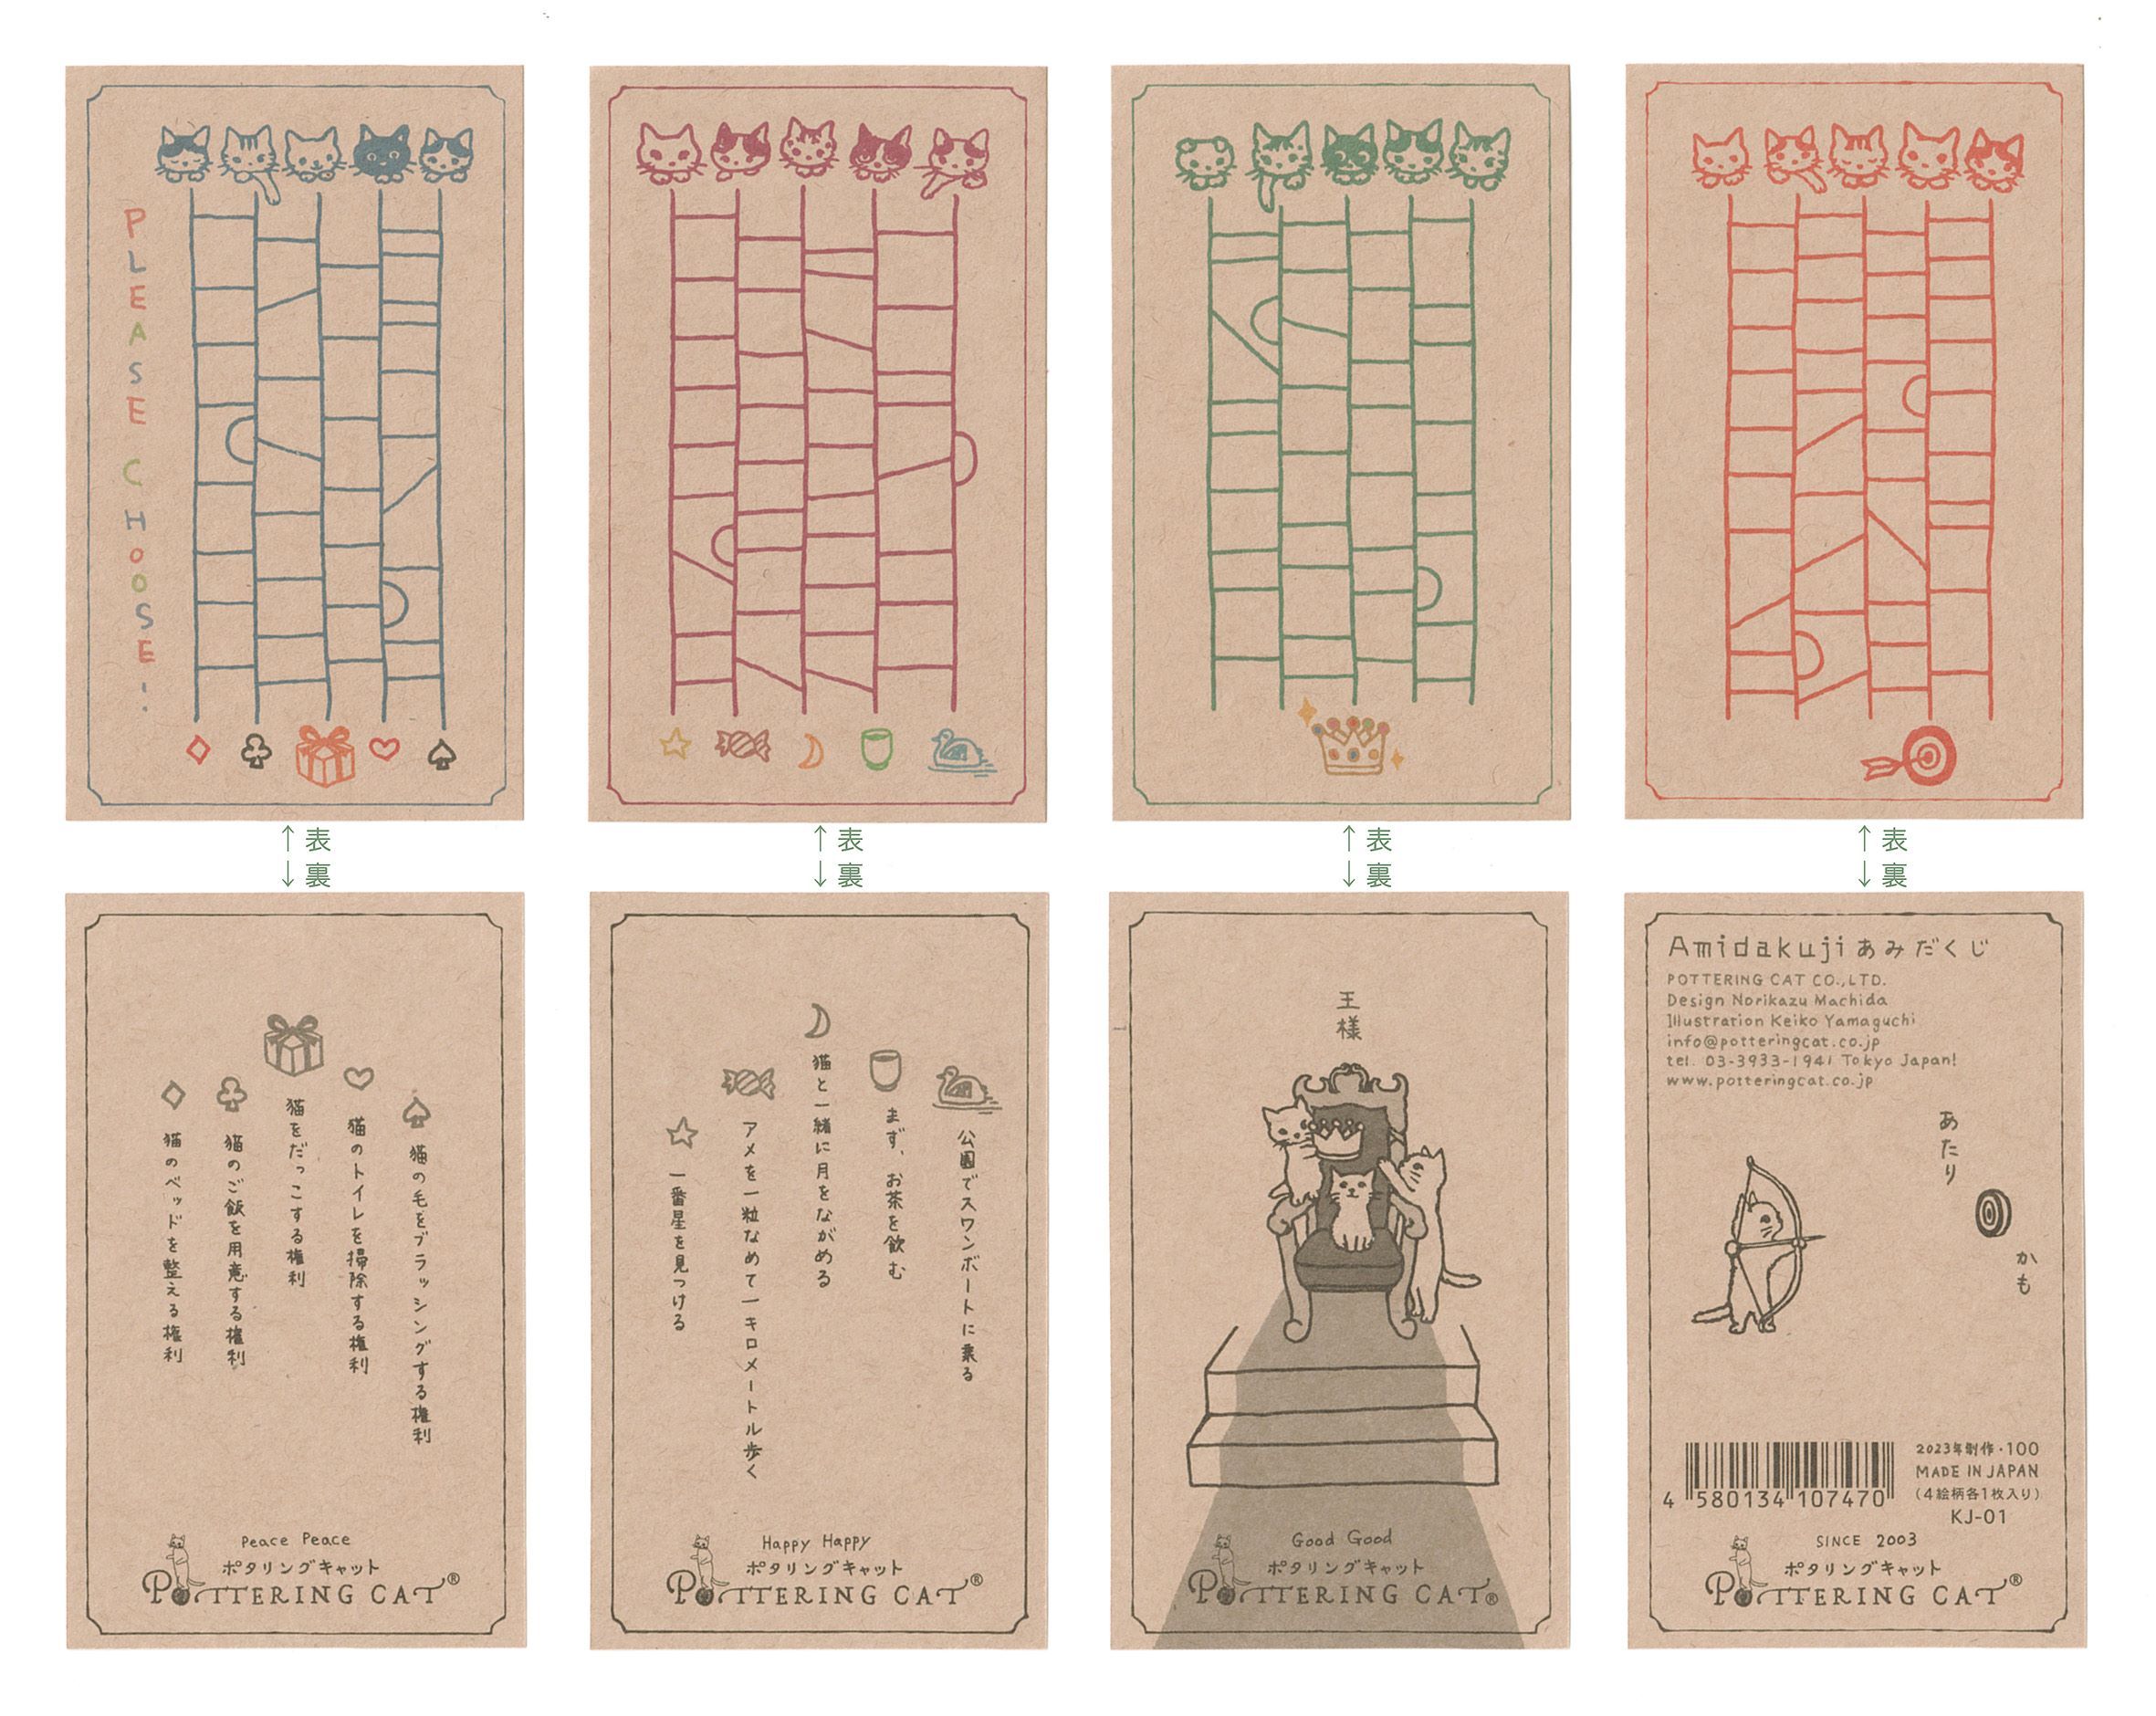 PLEASE CHOOSE!
↑表
↓裏
↑表
↓裏
↑表
↓裏
↑表
↓裏
猫の毛をブラッシングする権利
猫のトイレを掃除する権利
猫をだっこする権利
猫のご飯を用意する権利
猫のベッドを整える権利
Peace Peace
ポタリングキャット
POTTERING CAT®
公園でスワンボートに乗る
まず、お茶を飲む
猫と一緒に月をながめる
アメを一粒なめて一キロメートル歩く
一番星を見つける
Happy Happy
ポタリングキャット
POTTERING CAT®
王様
Good Good
ポタリングキャット
POTTERING CAT®
Amidakuji あみだくじ
POTTERING CAT CO.,LTD.
Design Norikazu Machida
Illustration Keiko Yamaguchi
info@potteringcat.co.jp
tel. 03-3933-1941 Tokyo Japan!
www.potteringcat.co.jp
あたり
かも
4 580134 107470
2023年制作・100
MADE IN JAPAN
(4絵柄各1枚入り)
KJ-01
SINCE 2003
ポタリングキャット
POTTERING CAT®